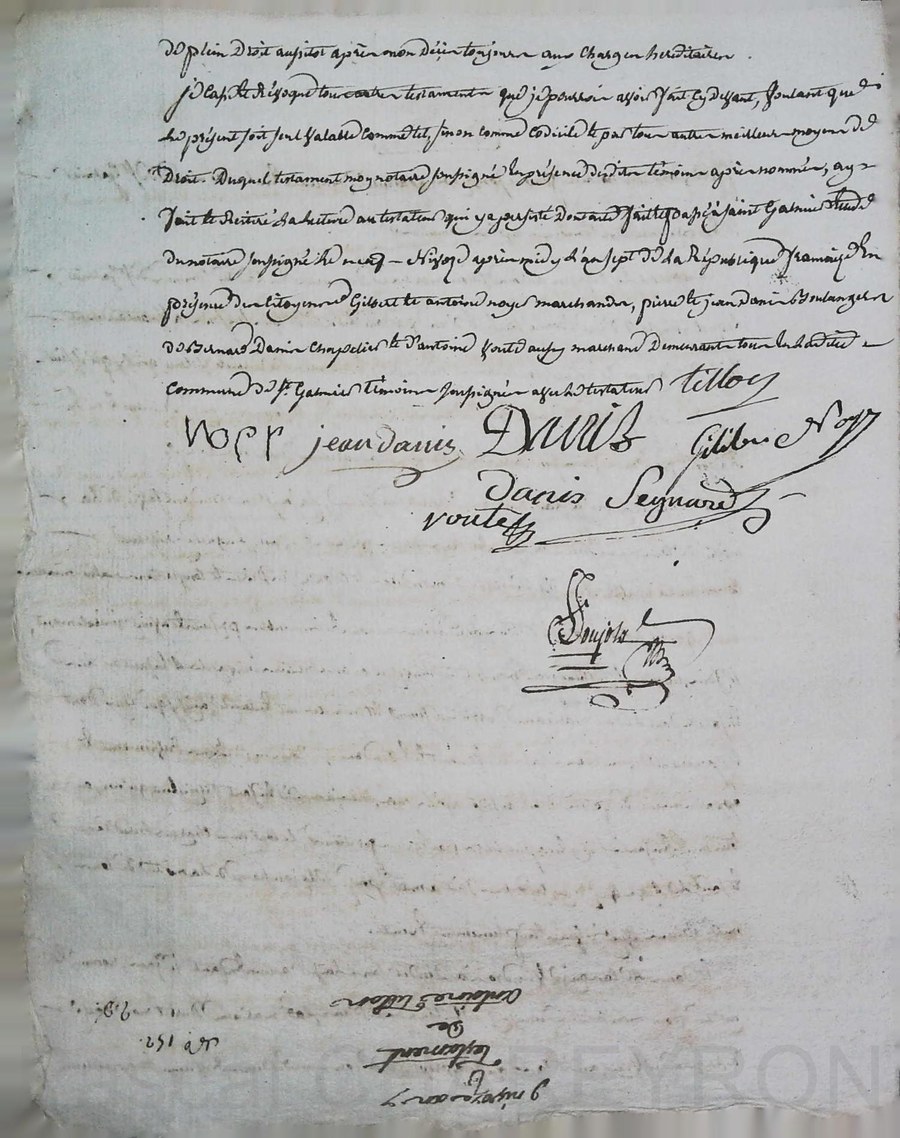 de plein Droit aussitot après mon Décès toujours aux charges hereditaires.
je Casse et Révoque tous autres testaments que je pourrois avoir fait Cy devant, Voulant que
Le présent soit seul Valable Comme tel, sinon comme Codicile et par tout autre meilleur moyen de
Droit. Duquel testament moy notaire soussigné En présence desdits témoins après nommés, ay
fait et Réitéré La lecture au testateur qui y a persisté Dont acte fait et passé à Saint Galmier Etude
du notaire soussigné Le neuf Nivose après midy L'an sept de La République française En
présence des Citoyens Gilbert et antoine noyer marchands, pierre et jean Danis Boulangers
de Bernard Danis Chapelier et d'antoine Voute aussy marchand Demeurants tous En Ladite
Commune de St. Galmier témoins soussignés avec Le testateur tilloy
noyer jean danis Danis Gilibert Noyer
danis Peynard
voute
9 nivose an 7
Testament
De
antoine Tilloy
No 152.